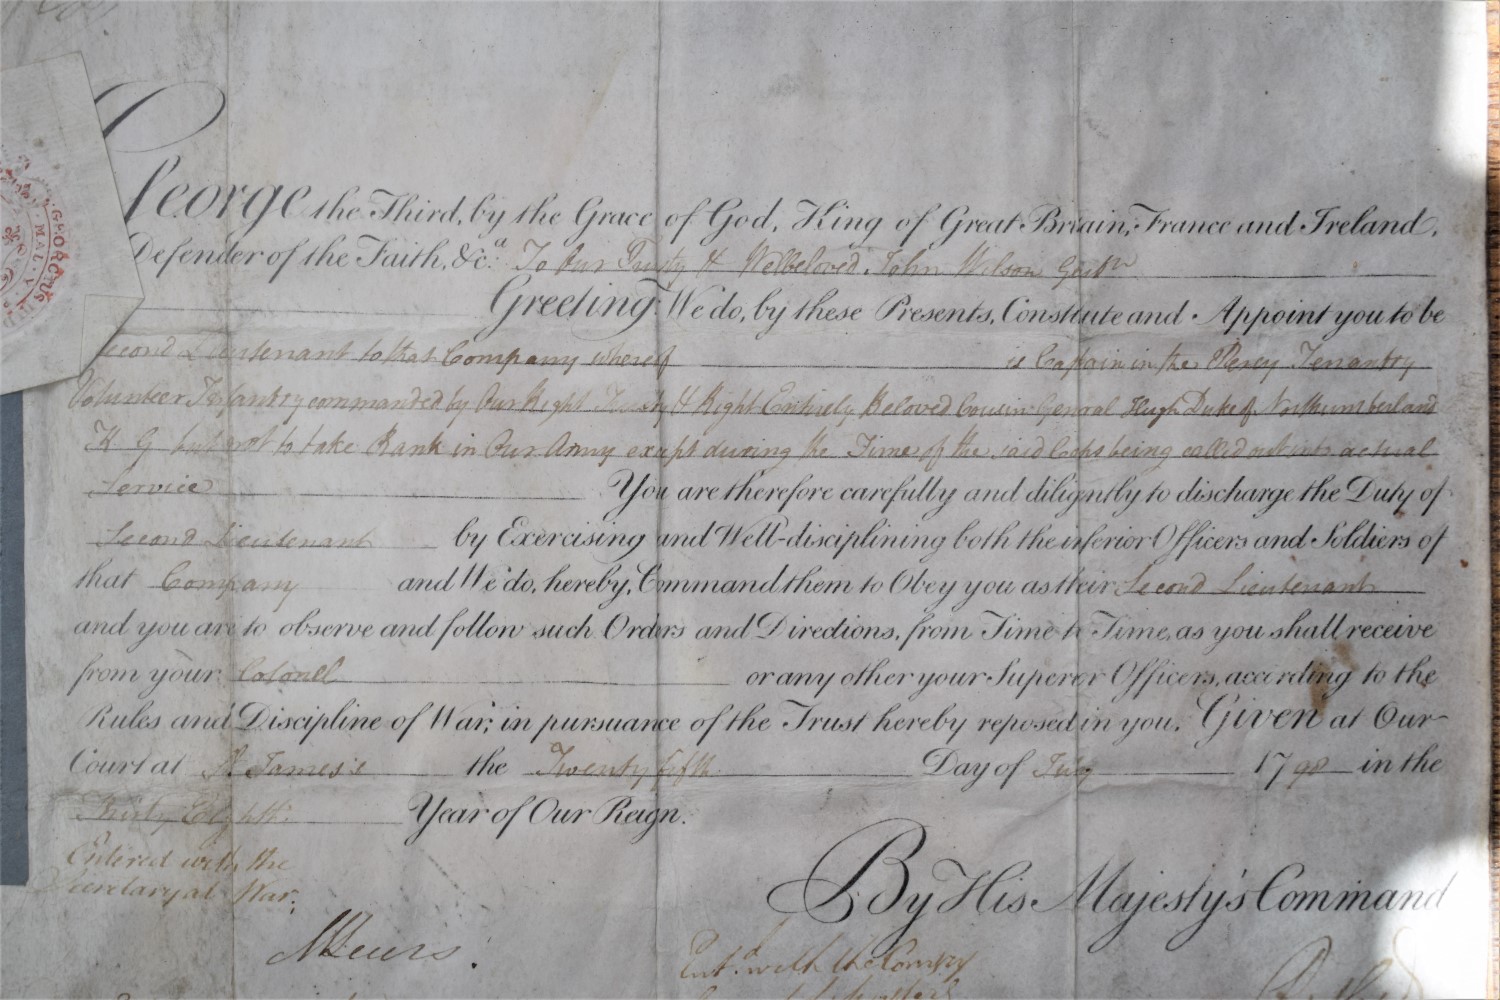 George the Third, by the Grace of God, King of Great Britain, France and Ireland,
Defender of the Faith, &c.a To Our Trusty & Welbeloved John Wilson Gent.n
Greeting. We do, by these Presents, Constitute and Appoint you to be
Second Lieutenant to that Company whereof is Captain in the Percy Tenantry
Volunteer Infantry commanded by Our Right Trusty & Right Entirely Beloved Cousin General Hugh Duke of Northumberland
K G but not to take Rank in Our Army except during the Time of the said Corps being called out into actual
Service You are therefore carefully and diligently to discharge the Duty of
Second Lieutenant by Exercising and Well-disciplining both the inferior Officers and Soldiers of
that Company and We do, hereby, Command them to Obey you as their Second Lieutenant
and you are to observe and follow such Orders and Directions, from Time to Time, as you shall receive
from your Colonel or any other your Superor Officers, according to the
Rules and Discipline of War; in pursuance of the Trust hereby reposed in you. Given at Our
Court at St. James's the Twenty fifth Day of July 1798 in the
Thirty Eighth Year of Our Reign.
Entered with the
Secretary at War.
By His Majesty's Command
Ent.d with the Com.sry
GEORGIUS
MAL